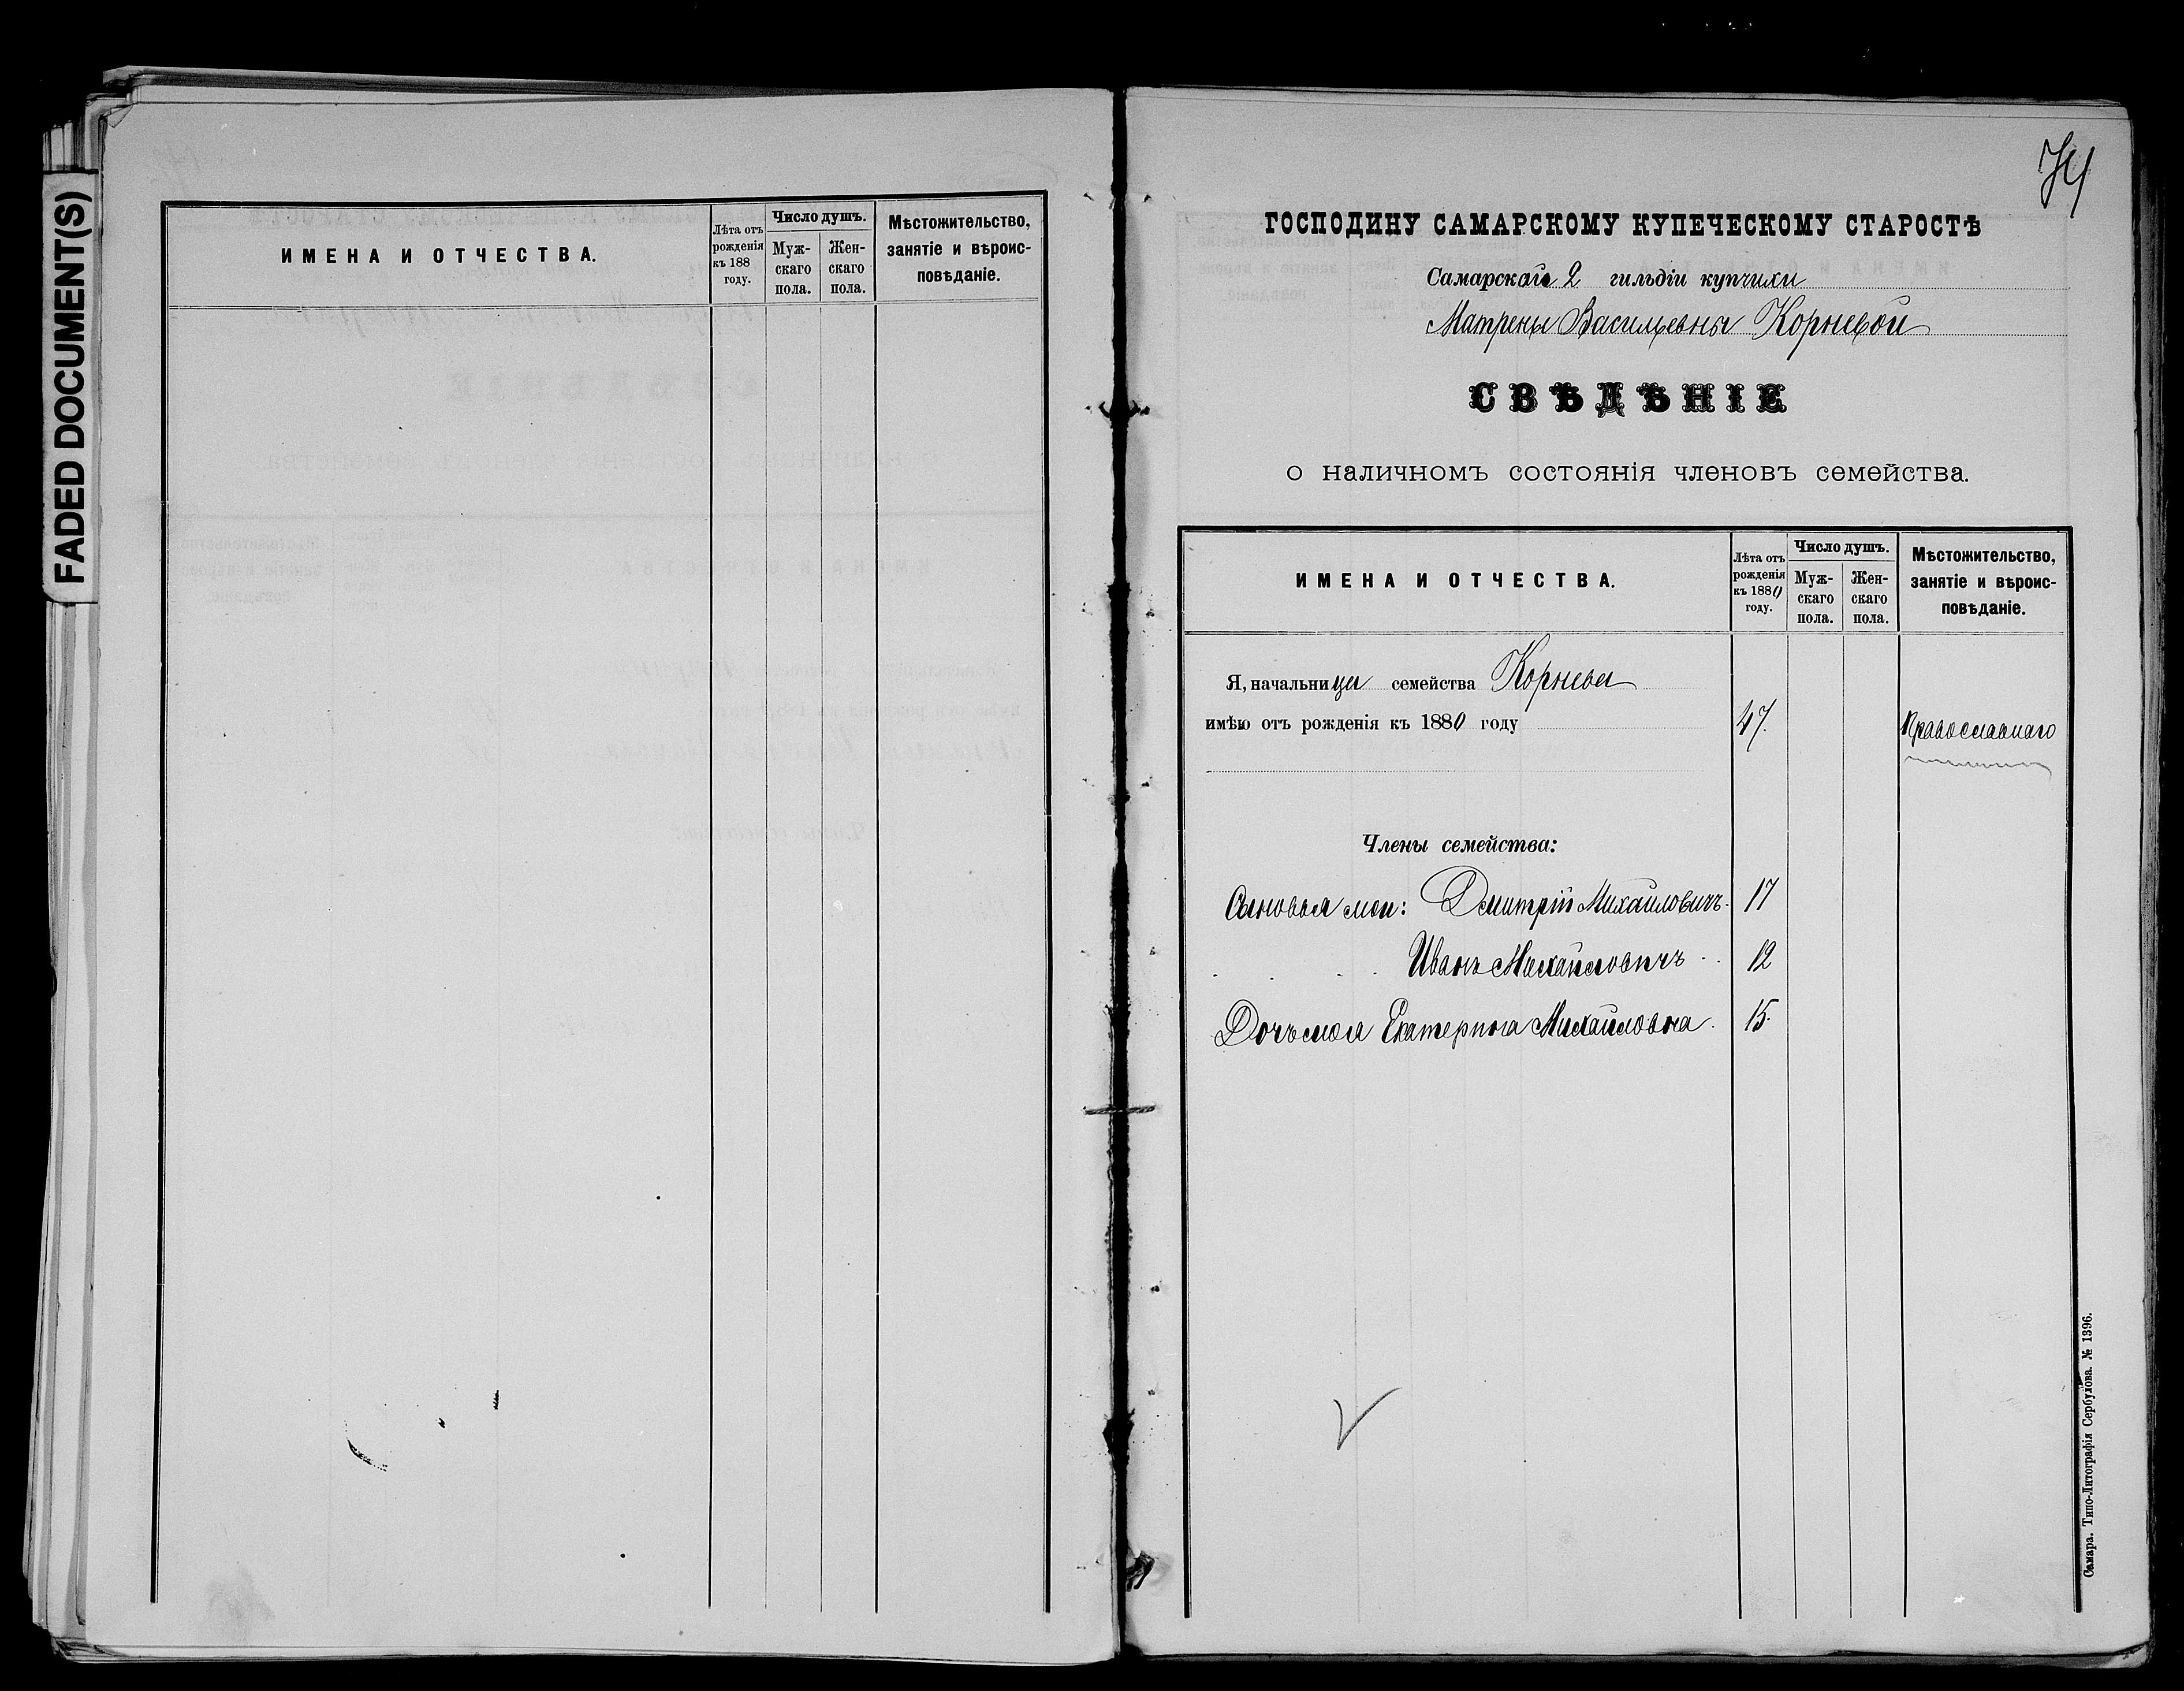 FADED DOCUMENT(S)
ИМЕНА И ОТЧЕСТВА.
Лѣта отъ рожденія къ 188 году.
Число душъ.
Мужскаго пола.
Женскаго пола.
Мѣстожительство, занятіе и вѣроисповѣданіе.
74
ГОСПОДИНУ САМАРСКОМУ КУПЕЧЕСКОМУ СТАРОСТѢ
Самарской 2 гильдіи купчихи
Матрены Васильевны Корневой
СВѢДѢНІЕ
о наличномъ состоянія членовъ семейства.
ИМЕНА И ОТЧЕСТВА.
Лѣта отъ рожденія къ 1880 году.
Число душъ.
Мужскаго пола.
Женскаго пола.
Мѣстожительство, занятіе и вѣроисповѣданіе.
Я, начальница семейства Корнева
имѣю отъ рожденія къ 1880 году 47. Православнаго
Члены семейства:
Сыновья мои: Дмитрій Михайловичъ. 17
Иванъ Михайловичъ 12
Дочь моя Екатерина Михайловна. 15.
Самара. Типо-Литографія Сербулова. № 1396.